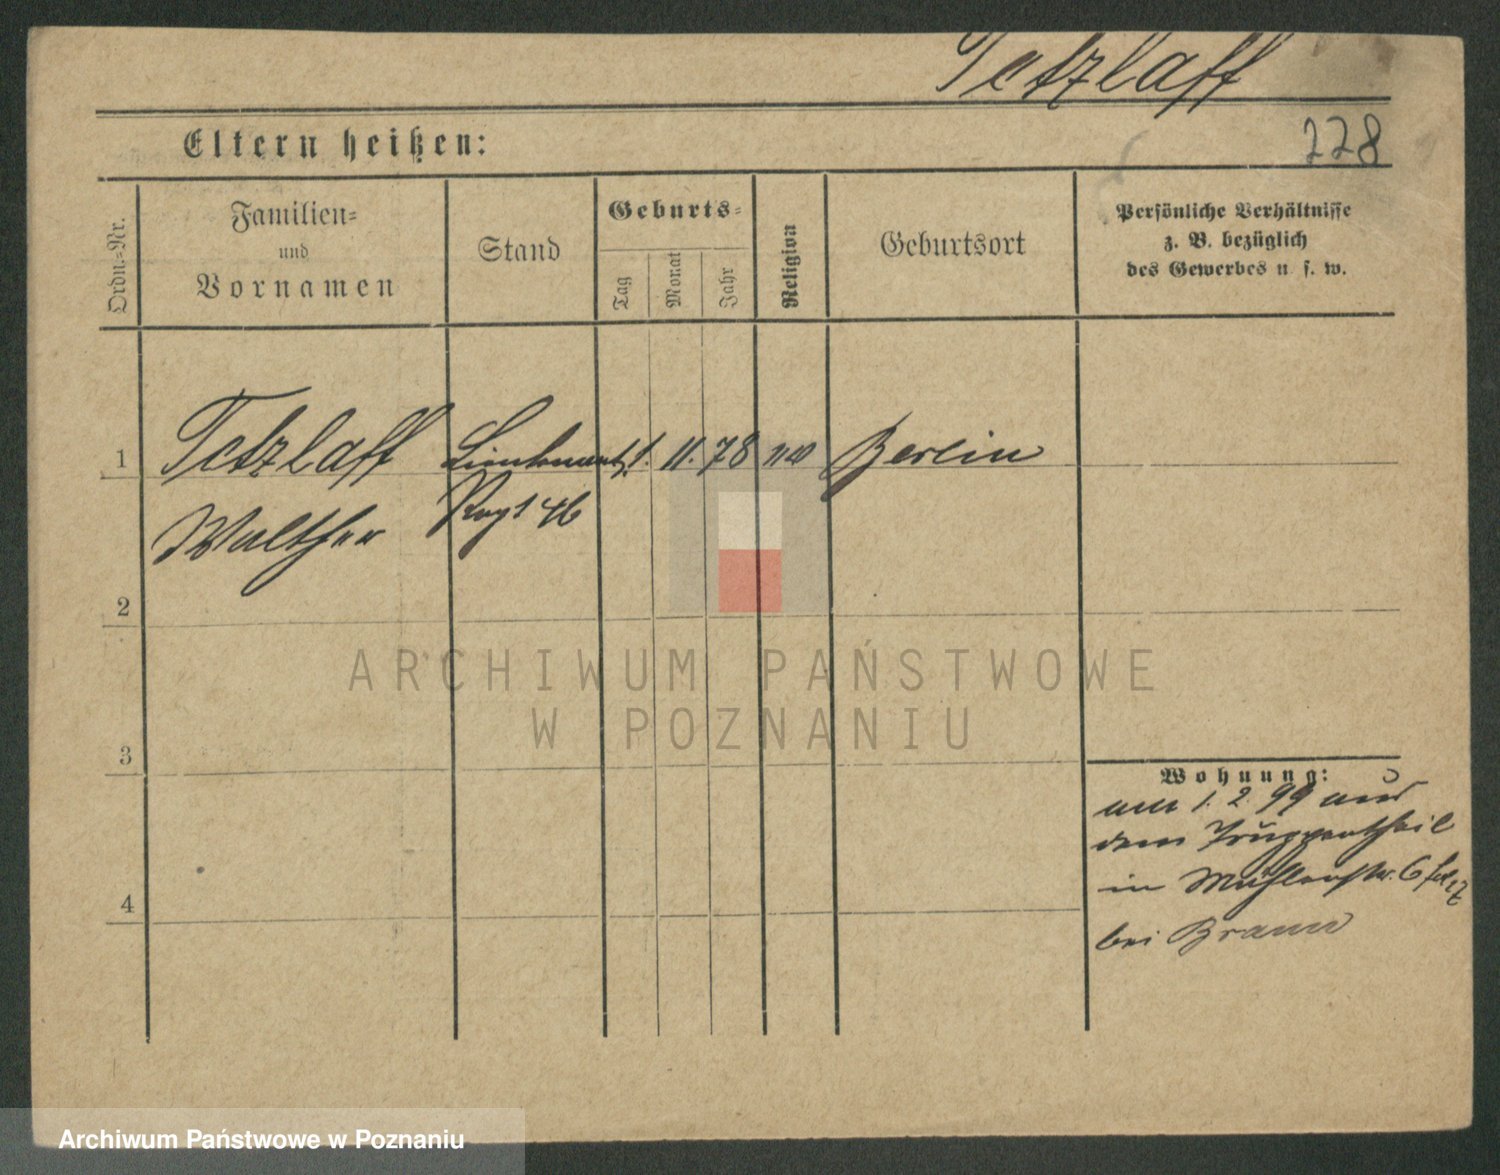 Tetzlaff
Eltern heißen:
228
Ordn.-Nr.
Familien-
und
Vornamen
Stand
Geburts-
Tag
Monat
Jahr
Religion
Geburtsort
Persönliche Verhältnisse
z. B. bezüglich
des Gewerbes u. s. w.
1 Tetzlaff Lieutenant 1. 11. 78 Berlin
Walther Regt 46
2
3
4
Wohnung:
am 1. 2. 99 aus
dem Truppentheil
in Mühlenstr. 6
bei Braun
ARCHIWUM PAŃSTWOWE
W POZNANIU
Archiwum Państwowe w Poznaniu